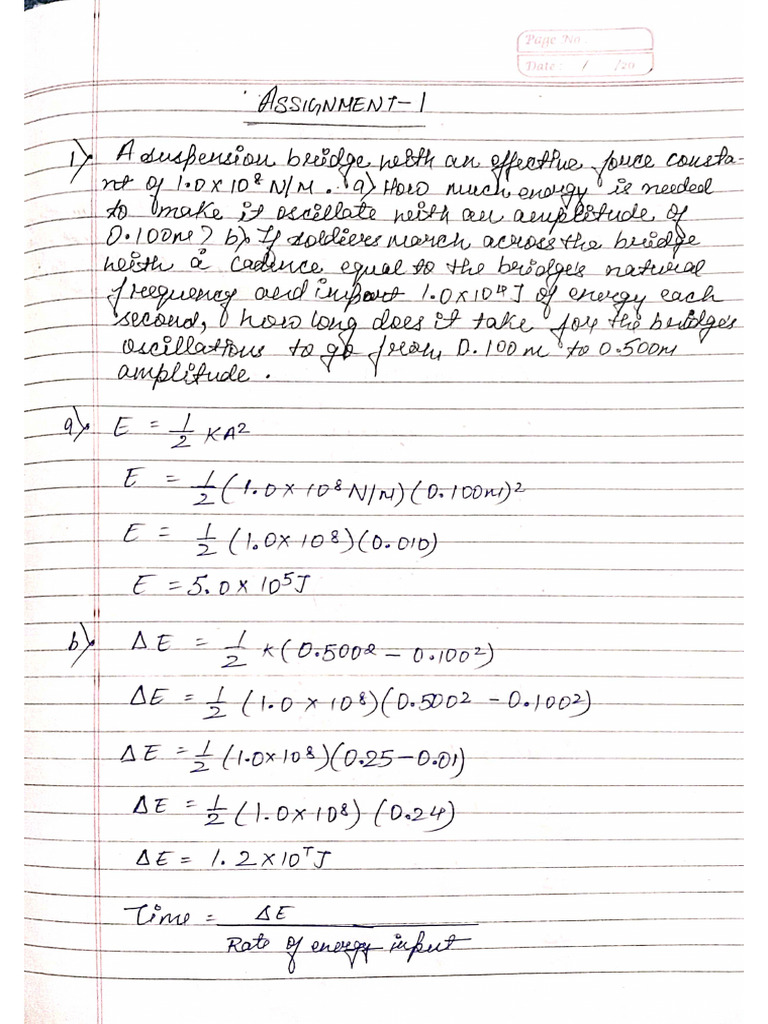 Page No.
Date: / /20
ASSIGNMENT-1
1) A suspension bridge with an effective force consta-
nt of 1.0 x 10⁸ N/M. a) How much energy is needed
to make it oscillate with an amplitude of
0.100m? b) If soldiers march across the bridge
with a cadence equal to the bridge's natural
frequency and impart 1.0x10⁴J of energy each
second, how long does it take for the bridge's
oscillations to go from 0.100m to 0.500m
amplitude.
a) E = 1/2 KA²
E = 1/2 (1.0 x 10⁸ N/M) (0.100m)²
E = 1/2 (1.0x 10⁸) (0.010)
E = 5.0 x 10⁵J
b) ΔE = 1/2 K (0.500² - 0.100²)
ΔE = 1/2 (1.0 x 10⁸) (0.500² - 0.100²)
ΔE = 1/2 (1.0x10⁸) (0.25-0.01)
ΔE = 1/2 (1.0x10⁸) (0.24)
ΔE = 1.2 x 10⁷J
Time = ΔE / Rate of energy input